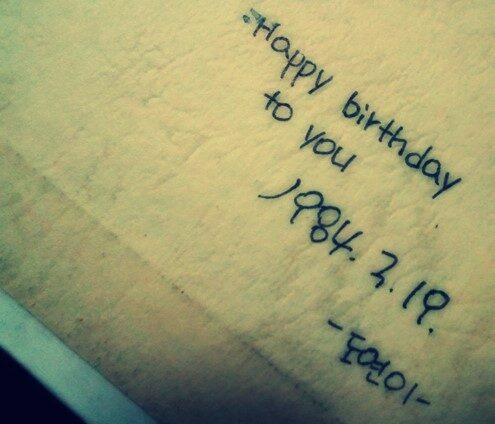 Happy birthday
to you
1984. 2. 19.
-도연이-